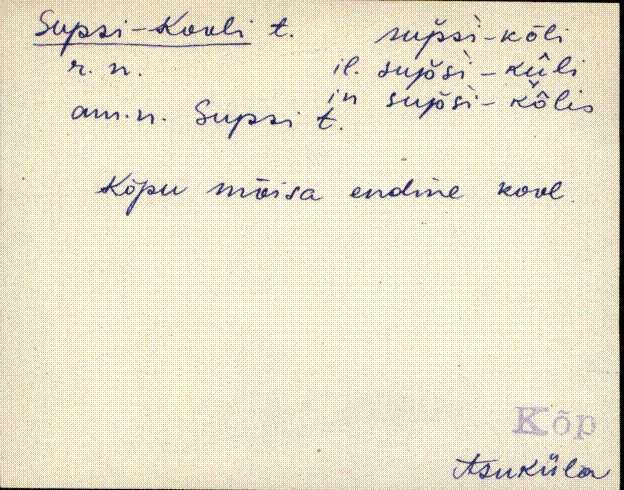 Supsi-Kooli t. sup̌si-kōli
r. n. il. sup̌si-kūli
am.n. Supsi t. in sup̌si-kōlis
Kõpu mõisa endine kool.
Kõp
Asuküla